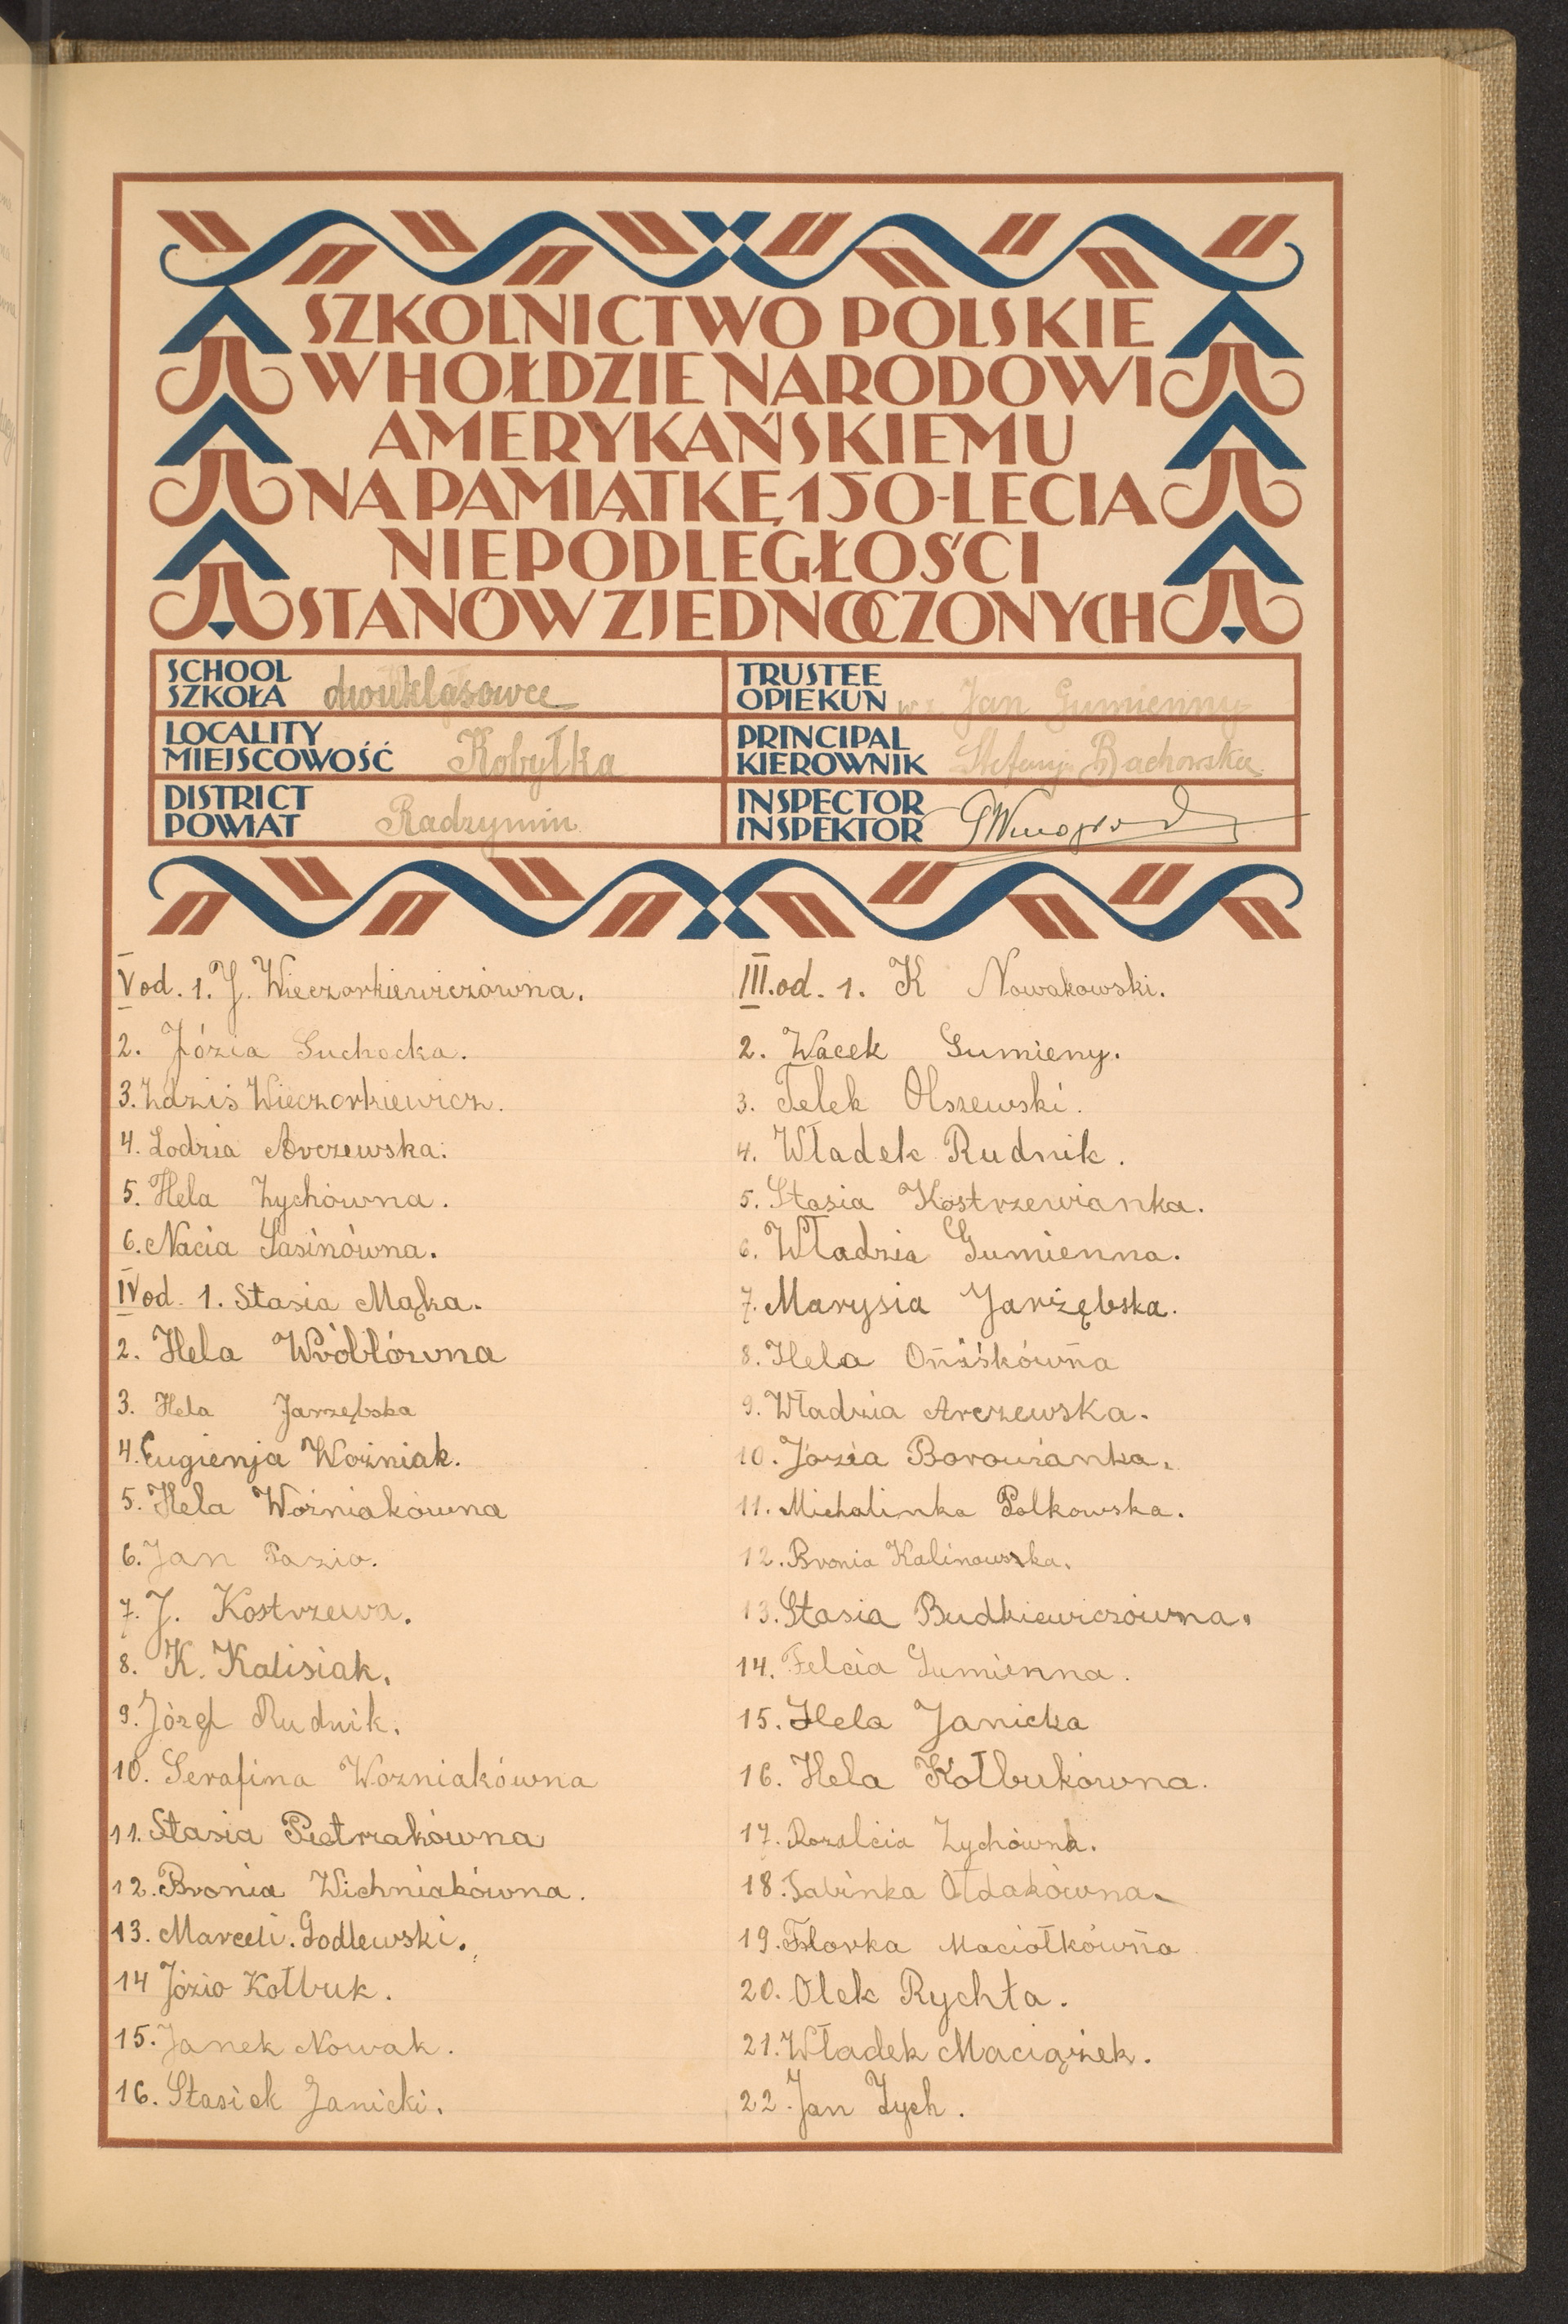 SZKOLNICTWO POLSKIE
W HOŁDZIE NARODOWI
AMERYKAŃSKIEMU
NA PAMIĄTKĘ 150-LECIA
NIEPODLEGŁOŚCI
STANÓW ZJEDNOCZONYCH
SCHOOL
SZKOŁA dwuklasowa
LOCALITY
MIEJSCOWOŚĆ Kobyłka
DISTRICT
POWIAT Radzymin
TRUSTEE
OPIEKUN Jan Gumienny
PRINCIPAL
KIEROWNIK Stefanja Bachowska
INSPECTOR
INSPEKTOR
V od. 1. J. Wieczorkiewiczówna.
2. Józia Suchocka.
3. Zdziś Wieczorkiewicz.
4. Lodzia Arczewska.
5. Hela Zychówna.
6. Nacia Sasinówna.
IV od. 1. Stasia Mąka.
2. Hela Wróblówna
3. Hela Jarzębska
4. Eugienja Woźniak.
5. Hela Woźniakówna
6. Jan Pazio.
7. J. Kostrzewa.
8. K. Kalisiak.
9. Józef Rudnik.
10. Serafina Wozniakówna
11. Stasia Pietrzakówna
12. Bronia Wichniakówna.
13. Marceli. Godlewski.
14 Józio Kołbuk.
15. Janek Nowak.
16. Stasiek Janicki.
III. od. 1. K Nowakowski.
2. Wacek Gumieny.
3. Felek Olszewski.
4. Władek Rudnik.
5. Stasia Kostrzewianka.
6. Władzia Gumienna.
7. Marysia Jarzębska.
8. Hela Oniśkówna
9. Władzia Arczewska.
10. Józia Borowianka.
11. Michalinka Polkowska.
12. Bronia Kalinowska.
13. Stasia Budkiewiczówna.
14. Felcia Gumienna.
15. Hela Janicka
16. Hela Kołbukówna.
17. Rozalcia Zychówna.
18. Sabinka Ołdakówna.
19. Florka Maciołkówna
20. Olek Rychta.
21. Władek Maciążek.
22. Jan Zych.